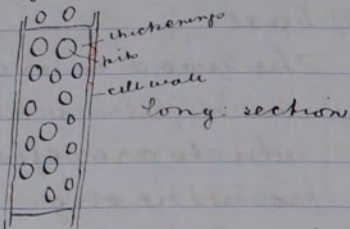 thickenings
pits
cell wall
long: section